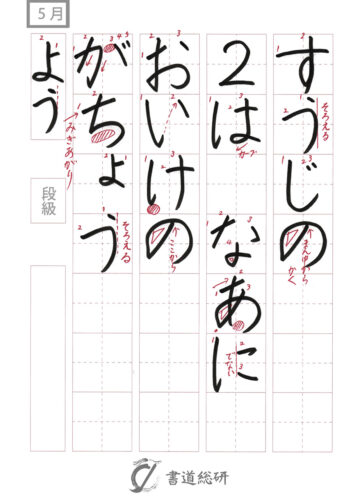 5月
すうじの
2は なあに
おいけの
がちょう
よう
段級
そろえる
カーブ
まん中から
かく
でない
ここから
みぎあがり
そろえる
書道総研